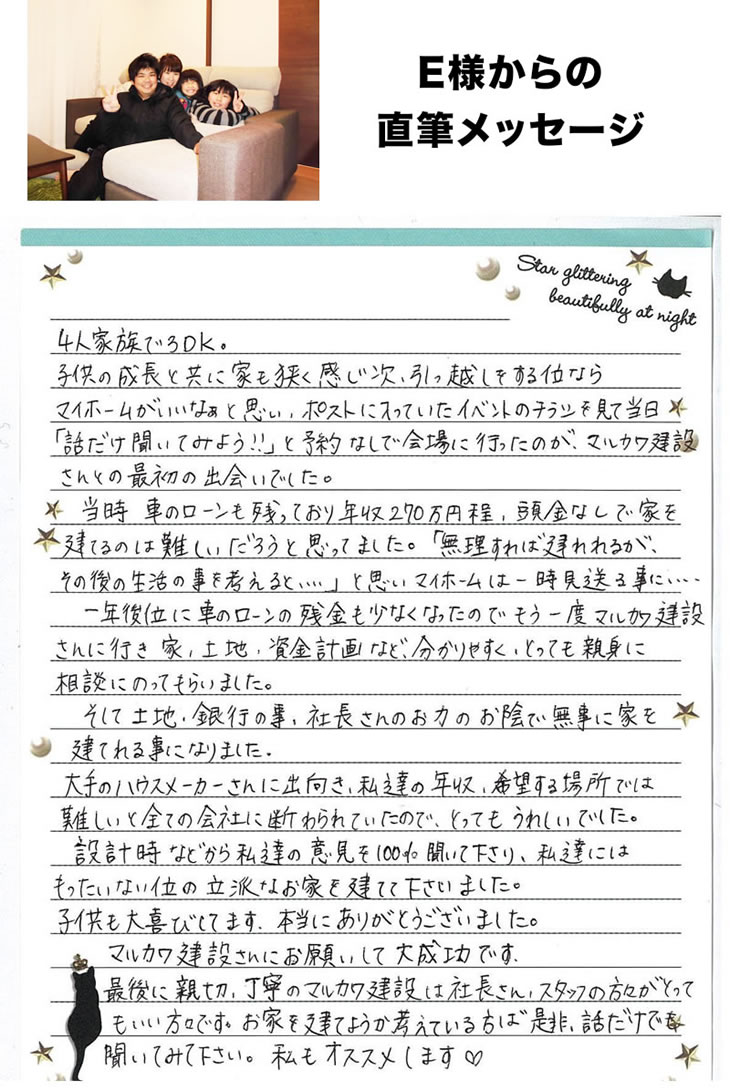 E様からの
直筆メッセージ
Star glittering
beautifully at night
4人家族で3DK。
子供の成長と共に家も狭く感じ次、引っ越しをする位なら
マイホームがいいなぁと思い、ポストに入っていたイベントのチラシを見て当日
「話だけ聞いてみよう!!」と予約なしで会場に行ったのが、マルカワ建設
さんとの最初の出会いでした。
当時 車のローンも残っており年収270万円程、頭金なしで家を
建てるのは難しいだろうと思ってました。「無理すれば建れれるが、
その後の生活の事を考えると、、、、」と思いマイホームは一時見送る事に、、、、
一年後位に車のローンの残金も少なくなったのでもう一度マルカワ建設
さんに行き 家、土地、資金計画など、分かりやすく、とっても親身に
相談にのってもらいました。
そして土地、銀行の事、社長さんのお力のお陰で無事に家を
建てれる事になりました。
大手のハウスメーカーさんに出向き、私達の年収、希望する場所では
難しいと全ての会社に断わられていたので、とってもうれしいでした。
設計時などから私達の意見を100%聞いて下さり、私達には
もったいない位の立派なお家を建てて下さいました。
子供も大喜びしてます。本当にありがとうございました。
マルカワ建設さんにお願いして大成功です。
最後に親切、丁寧のマルカワ建設は社長さん、スタッフの方々がとって
もいい方々です。お家を建てようか考えている方は是非、話だけでも
聞いてみて下さい。私もオススメします♡